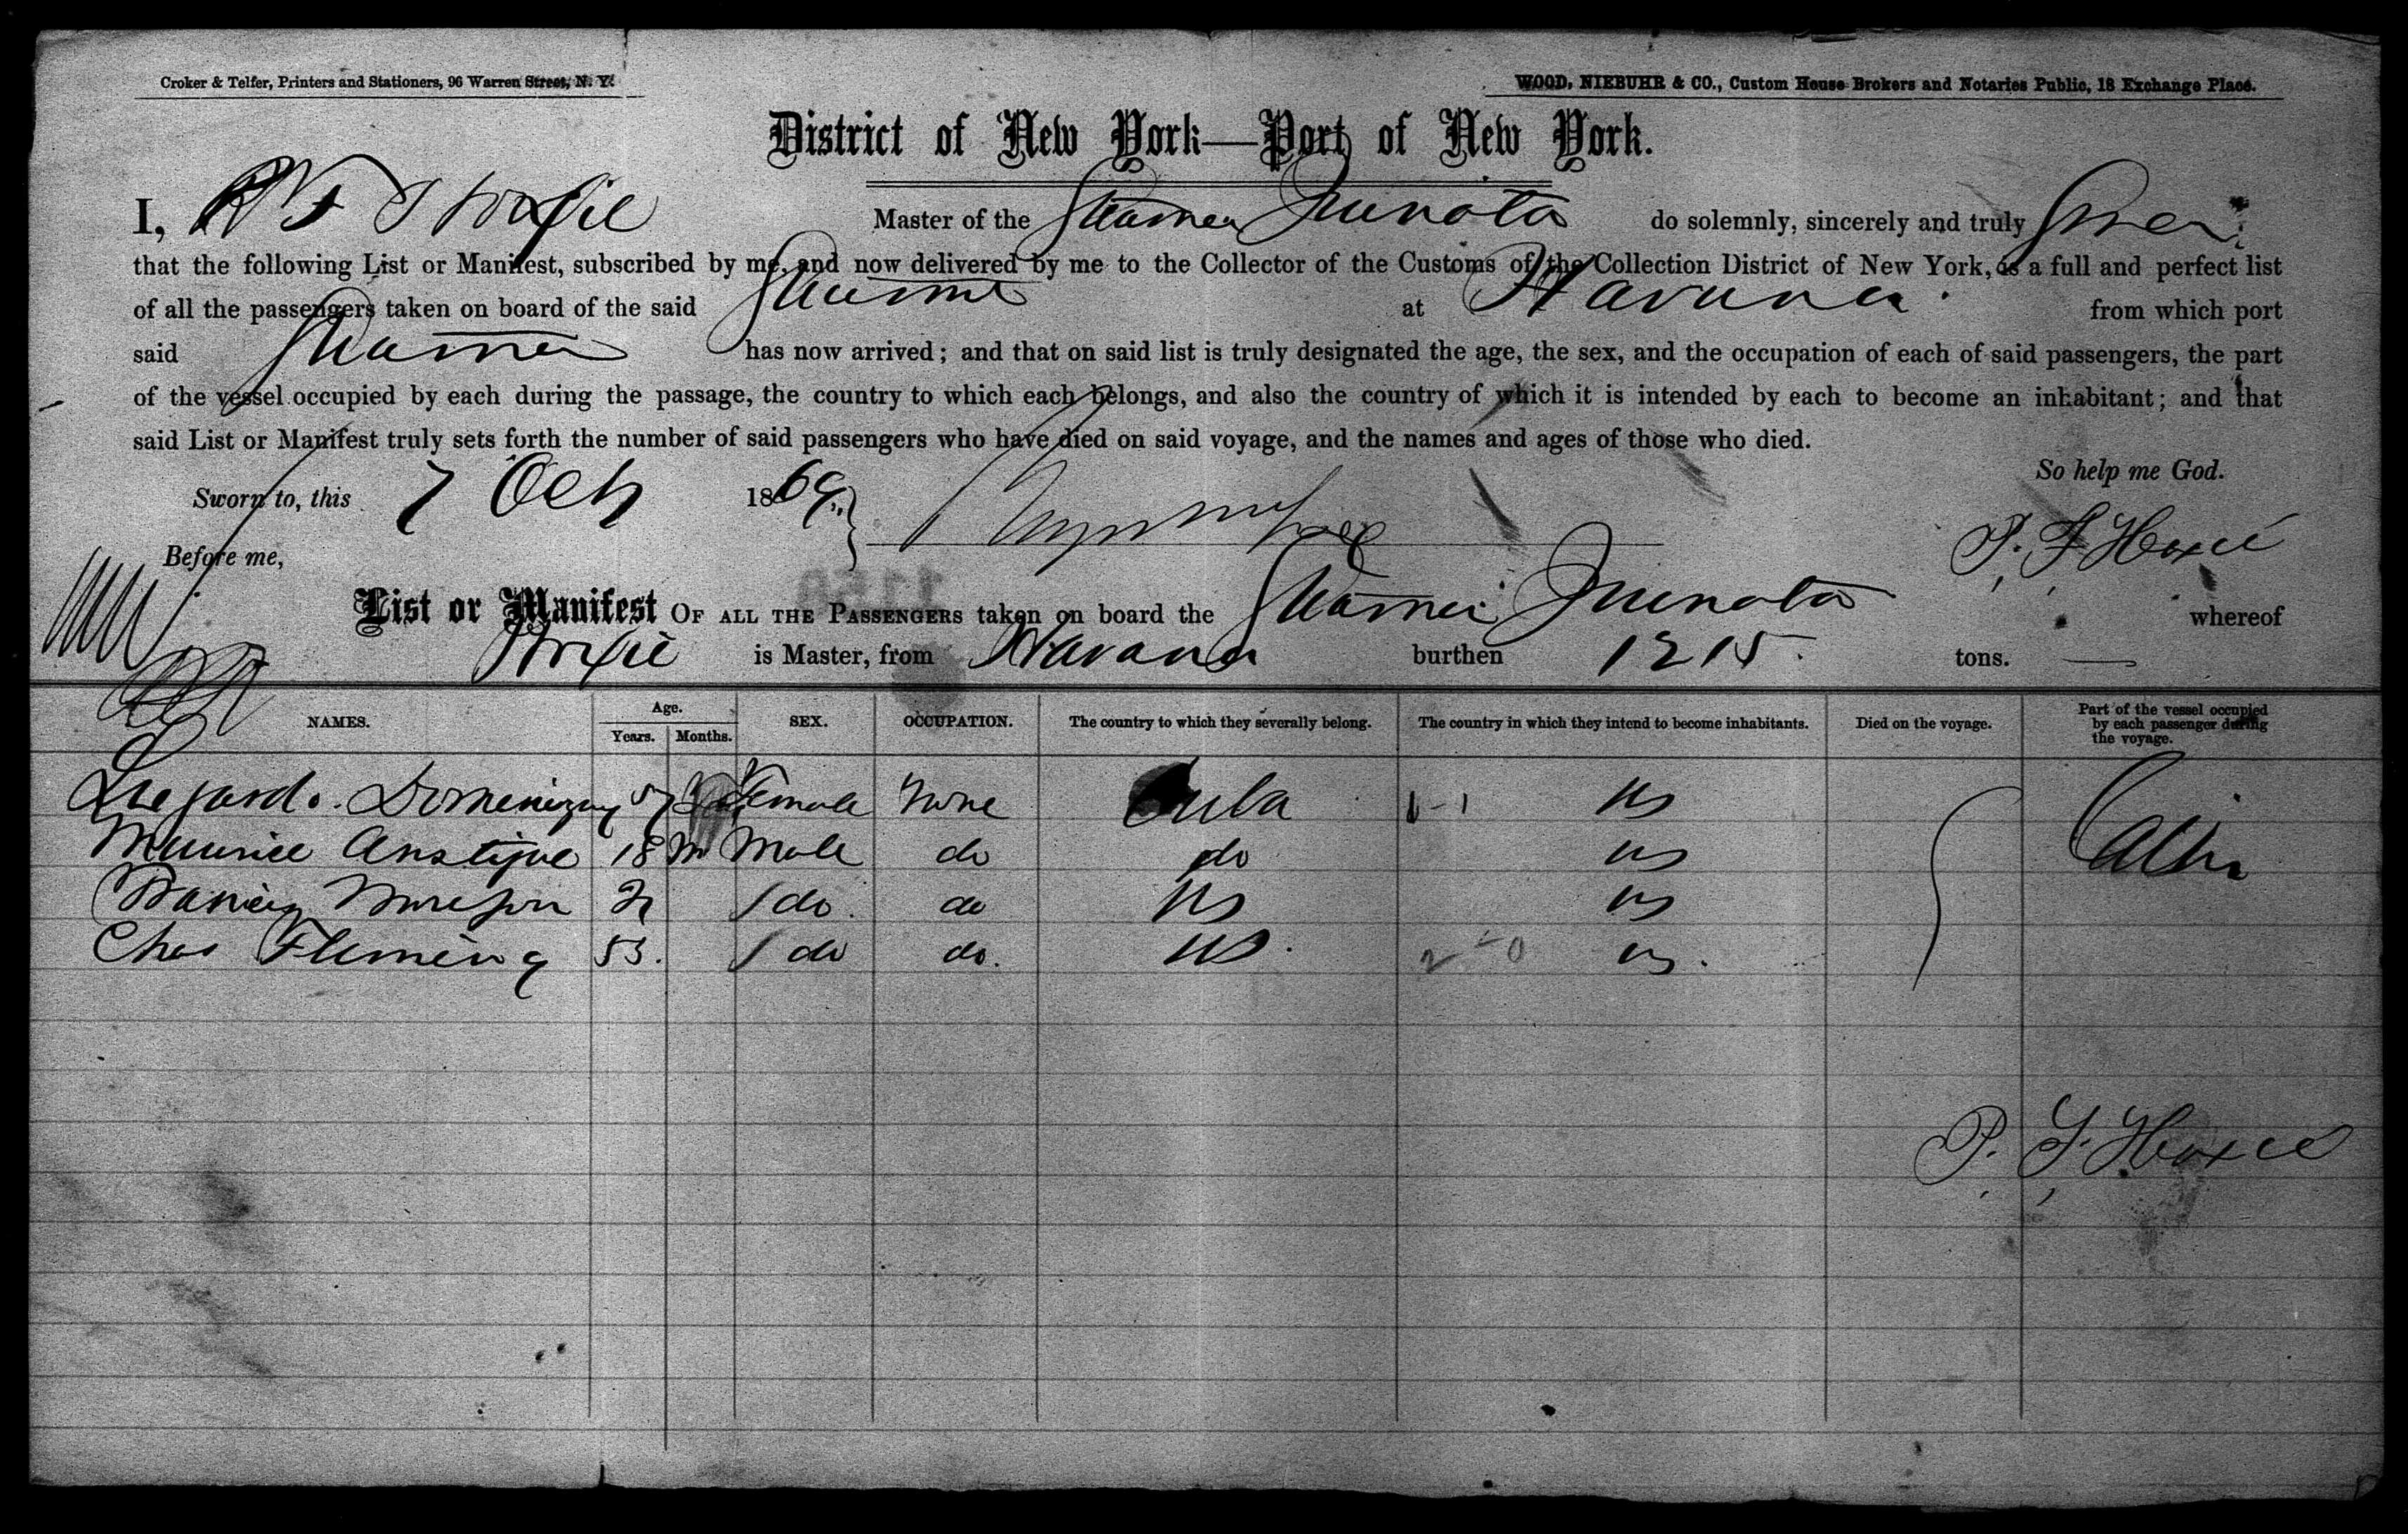 Croker & Telfer, Printers and Stationers, 96 Warren Street, N. Y.
WOOD, NIEBUHR & CO., Custom House Brokers and Notaries Public, 18 Exchange Place.
District of New York—Port of New York.
I, P F Hoxie Master of the Steamer Juniata do solemnly, sincerely and truly Swear
that the following List or Manifest, subscribed by me, and now delivered by me to the Collector of the Customs of the Collection District of New York, is a full and perfect list
of all the passengers taken on board of the said Steamer at Havana from which port
said Steamer has now arrived; and that on said list is truly designated the age, the sex, and the occupation of each of said passengers, the part
of the vessel occupied by each during the passage, the country to which each belongs, and also the country of which it is intended by each to become an inhabitant; and that
said List or Manifest truly sets forth the number of said passengers who have died on said voyage, and the names and ages of those who died.
So help me God.
Sworn to, this 7 Oct 1869
P. F Hoxie
Before me,
List or Manifest OF ALL THE PASSENGERS taken on board the Steamer Juniata whereof
Hoxie is Master, from Havana burthen 1215 tons.
NAMES. Age. Years. Months. SEX. OCCUPATION. The country to which they severally belong. The country in which they intend to become inhabitants. Died on the voyage. Part of the vessel occupied by each passenger during the voyage.
57 Female None Cuba US Cabin
Maurice 18 m Male do do US
do do US US
Chas Fleming 53. do do. US. 2-0 US.
P. F. Hoxie